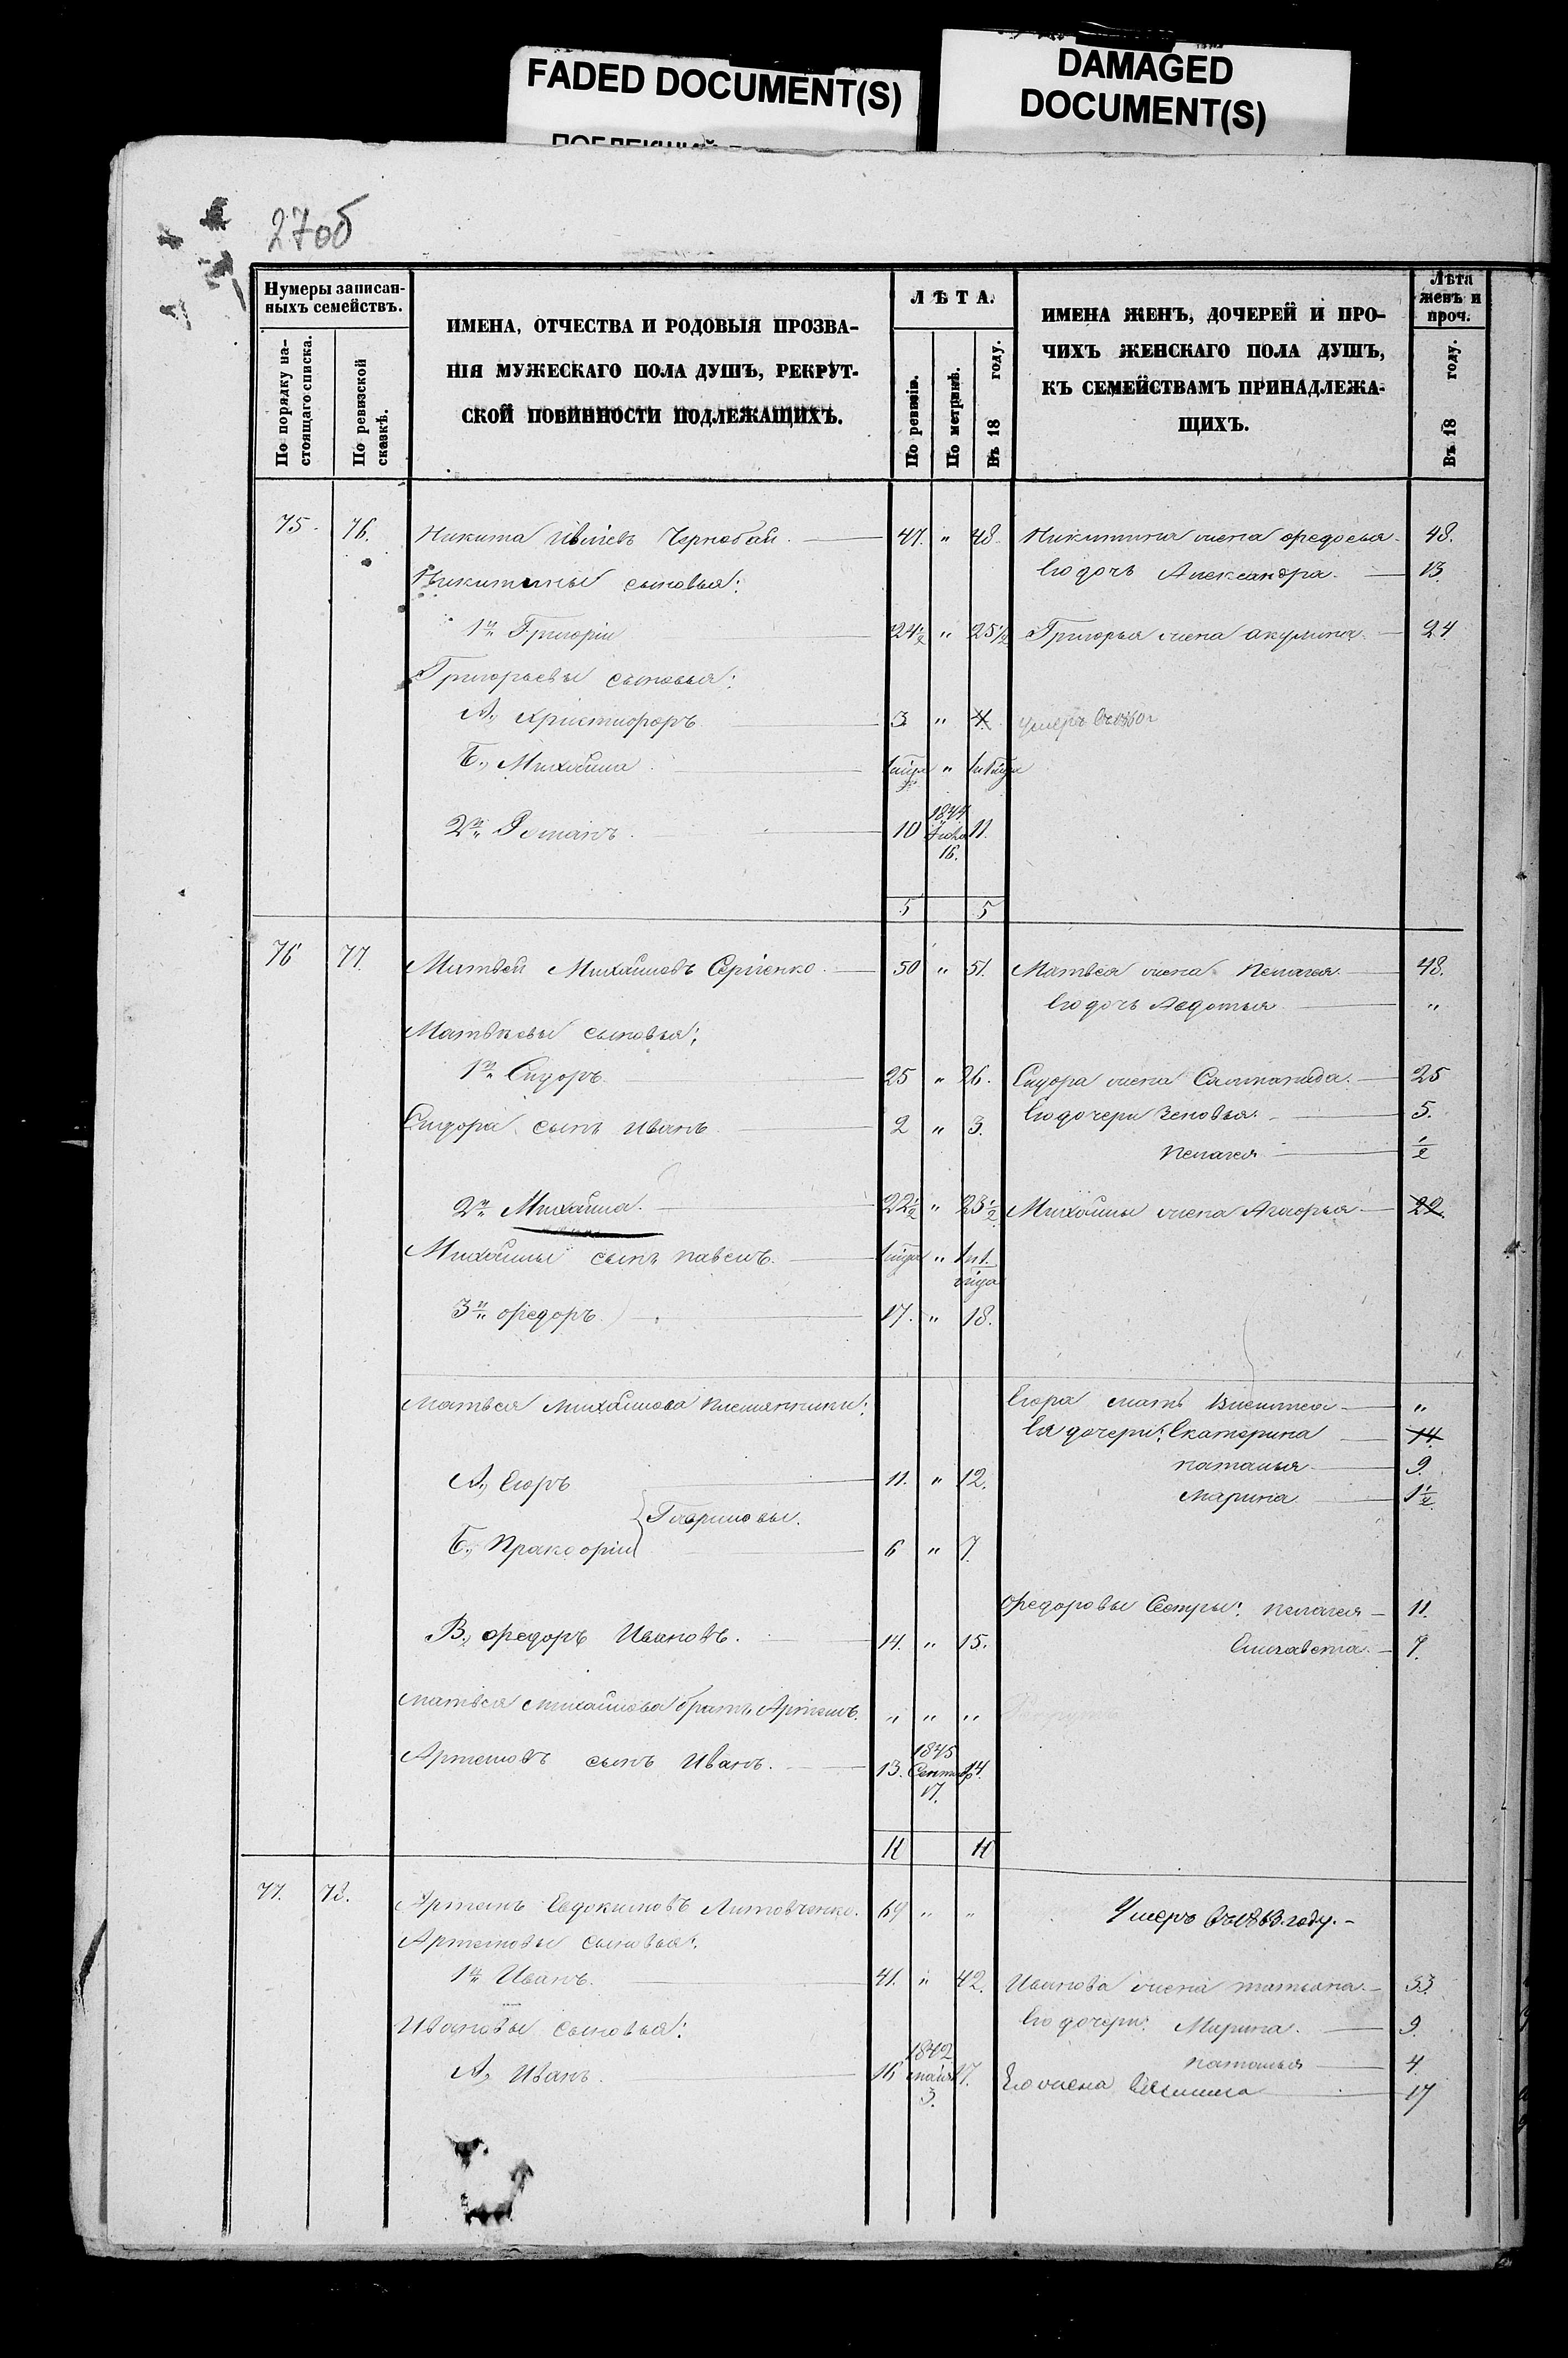 FADED DOCUMENT(S)
DAMAGED
DOCUMENT(S)
27об
Нумеры записан-
ныхъ семействъ.
По порядку на-
стоящаго списка.
По ревизской
сказкѣ.
ИМЕНА, ОТЧЕСТВА И РОДОВЫЯ ПРОЗВА-
НІЯ МУЖЕСКАГО ПОЛА ДУШЪ, РЕКРУТ-
СКОЙ ПОВИННОСТИ ПОДЛЕЖАЩИХЪ.
ЛѢТА.
По ревизіи.
По метрикѣ.
Въ 18 году.
ИМЕНА ЖЕНЪ, ДОЧЕРЕЙ И ПРО-
ЧИХЪ ЖЕНСКАГО ПОЛА ДУШЪ,
КЪ СЕМЕЙСТВАМЪ ПРИНАДЛЕЖА-
ЩИХЪ.
Лѣта
женъ и
проч.
Въ 18 году.
75. 76. Никита Чернобай. 47. " 48. Никитина жена Федосья 48.
Никитины сыновья: Его дочь Александра. 13.
1й Григорій 24½ " 25½ Григорья жена Акулина 24
Григорьевы сыновья:
А., Христофоръ 3 " 4. умеръ
Б., Михайла "
2й Романъ. 10 1847 11.
16.
5 5
76 77. Матвѣй Михайловъ Сергіенко. 50 " 51. Матвѣя жена Пелагея. 48.
Его дочь Авдотья "
Матвѣевы сыновья:
1й Сидоръ. 25 " 26. Сидора жена 25
Сидора сынъ Иванъ 2 " 3. Его дочери Зеновья. 5.
Пелагея ½
2й Михайла. 22½ " 23½ Михайлы жена 22.
Михайлы сынъ Павелъ. "
3й Федоръ 17. " 18.
Матвѣя Михайлова племянники: Егора мать "
Ея дочери: Екатерина 14.
А., Егоръ 11. " 12. Наталья 9.
Марина 1½
Гавриловы.
Б., 6 " 7.
Федоровы Сестры: Пелагея 11.
В., Федоръ Ивановъ. 14. " 15. Елизавета. 7.
Матвѣя Михайлова братъ Артемъ. " " "
Артемовъ сынъ Иванъ. 13. 1845 14.
17.
11 11
77. 78. Артемъ Евдокимовъ Литовченко. 69 " " Умеръ въ 1863. году.
Артемовы сыновья:
1й Иванъ. 41. " 42. Иванова жена Татьяна. 33.
Ивановы сыновья: Его дочери: Марина. 9.
Наталья 4
А., Иванъ. 16 1842 мая 3. 17. Его жена 17